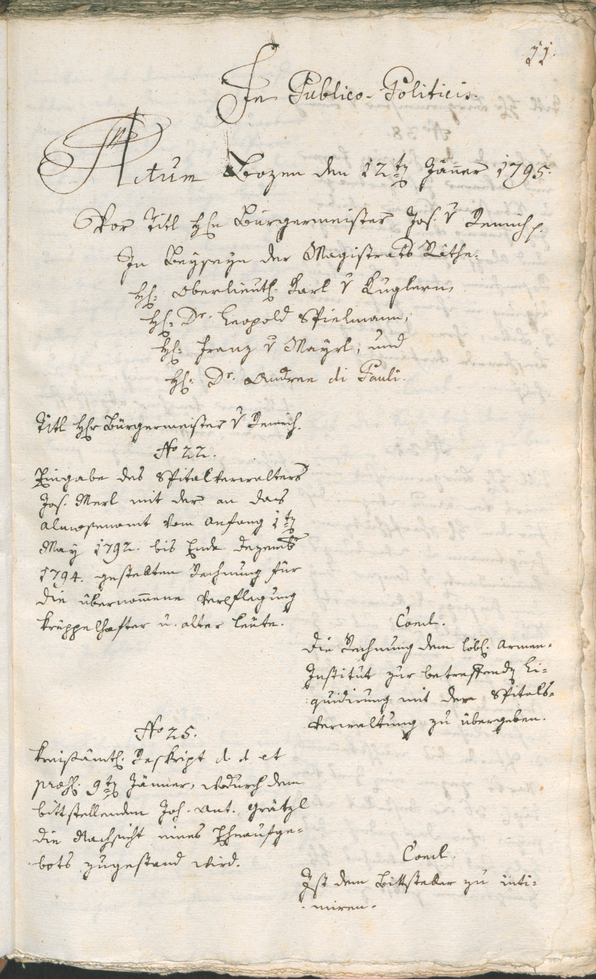 11.
In Publico-Politicis.
Actum Bozen den 12ten Jänner 1795.
Vor Titl Hhn Bürgermeister Jos. v Remich.
In Beyseyn der Magistrats Räthe.
Hh. Oberlieuth. Karl v Kuglern,
Hh. Dr. Leopold Spielmann,
Hh. Franz v Mayrl, und
Hh. Dr. Andree di Pauli.
Titl Hhr Bürgermeister v Remich.
No 22.
Eingabe des Spitalverwalters
Jos. Merl mit der an das
Almosenamt vom Anfang 1ten
May 1792. bis Ende Dezemb
1794. gestellten Rechnung für
die übernommene Verpflegung
krüppelhafter u. alter Leute.
Concl.
Die Rechnung dem löbl. Armen-
Institut zur betreffend Li-
quidirung mit der Spitals-
Verwaltung zu übergeben.
No 25.
Kreisämtl. Reskript d d et
präs. 9ten Jänner, wodurch dem
bittstellenden Joh. Ant. Grätzl
die Nachsicht eines Eheaufge-
bots zugestand wird.
Concl.
Ist dem Bittsteller zu inti-
miren.